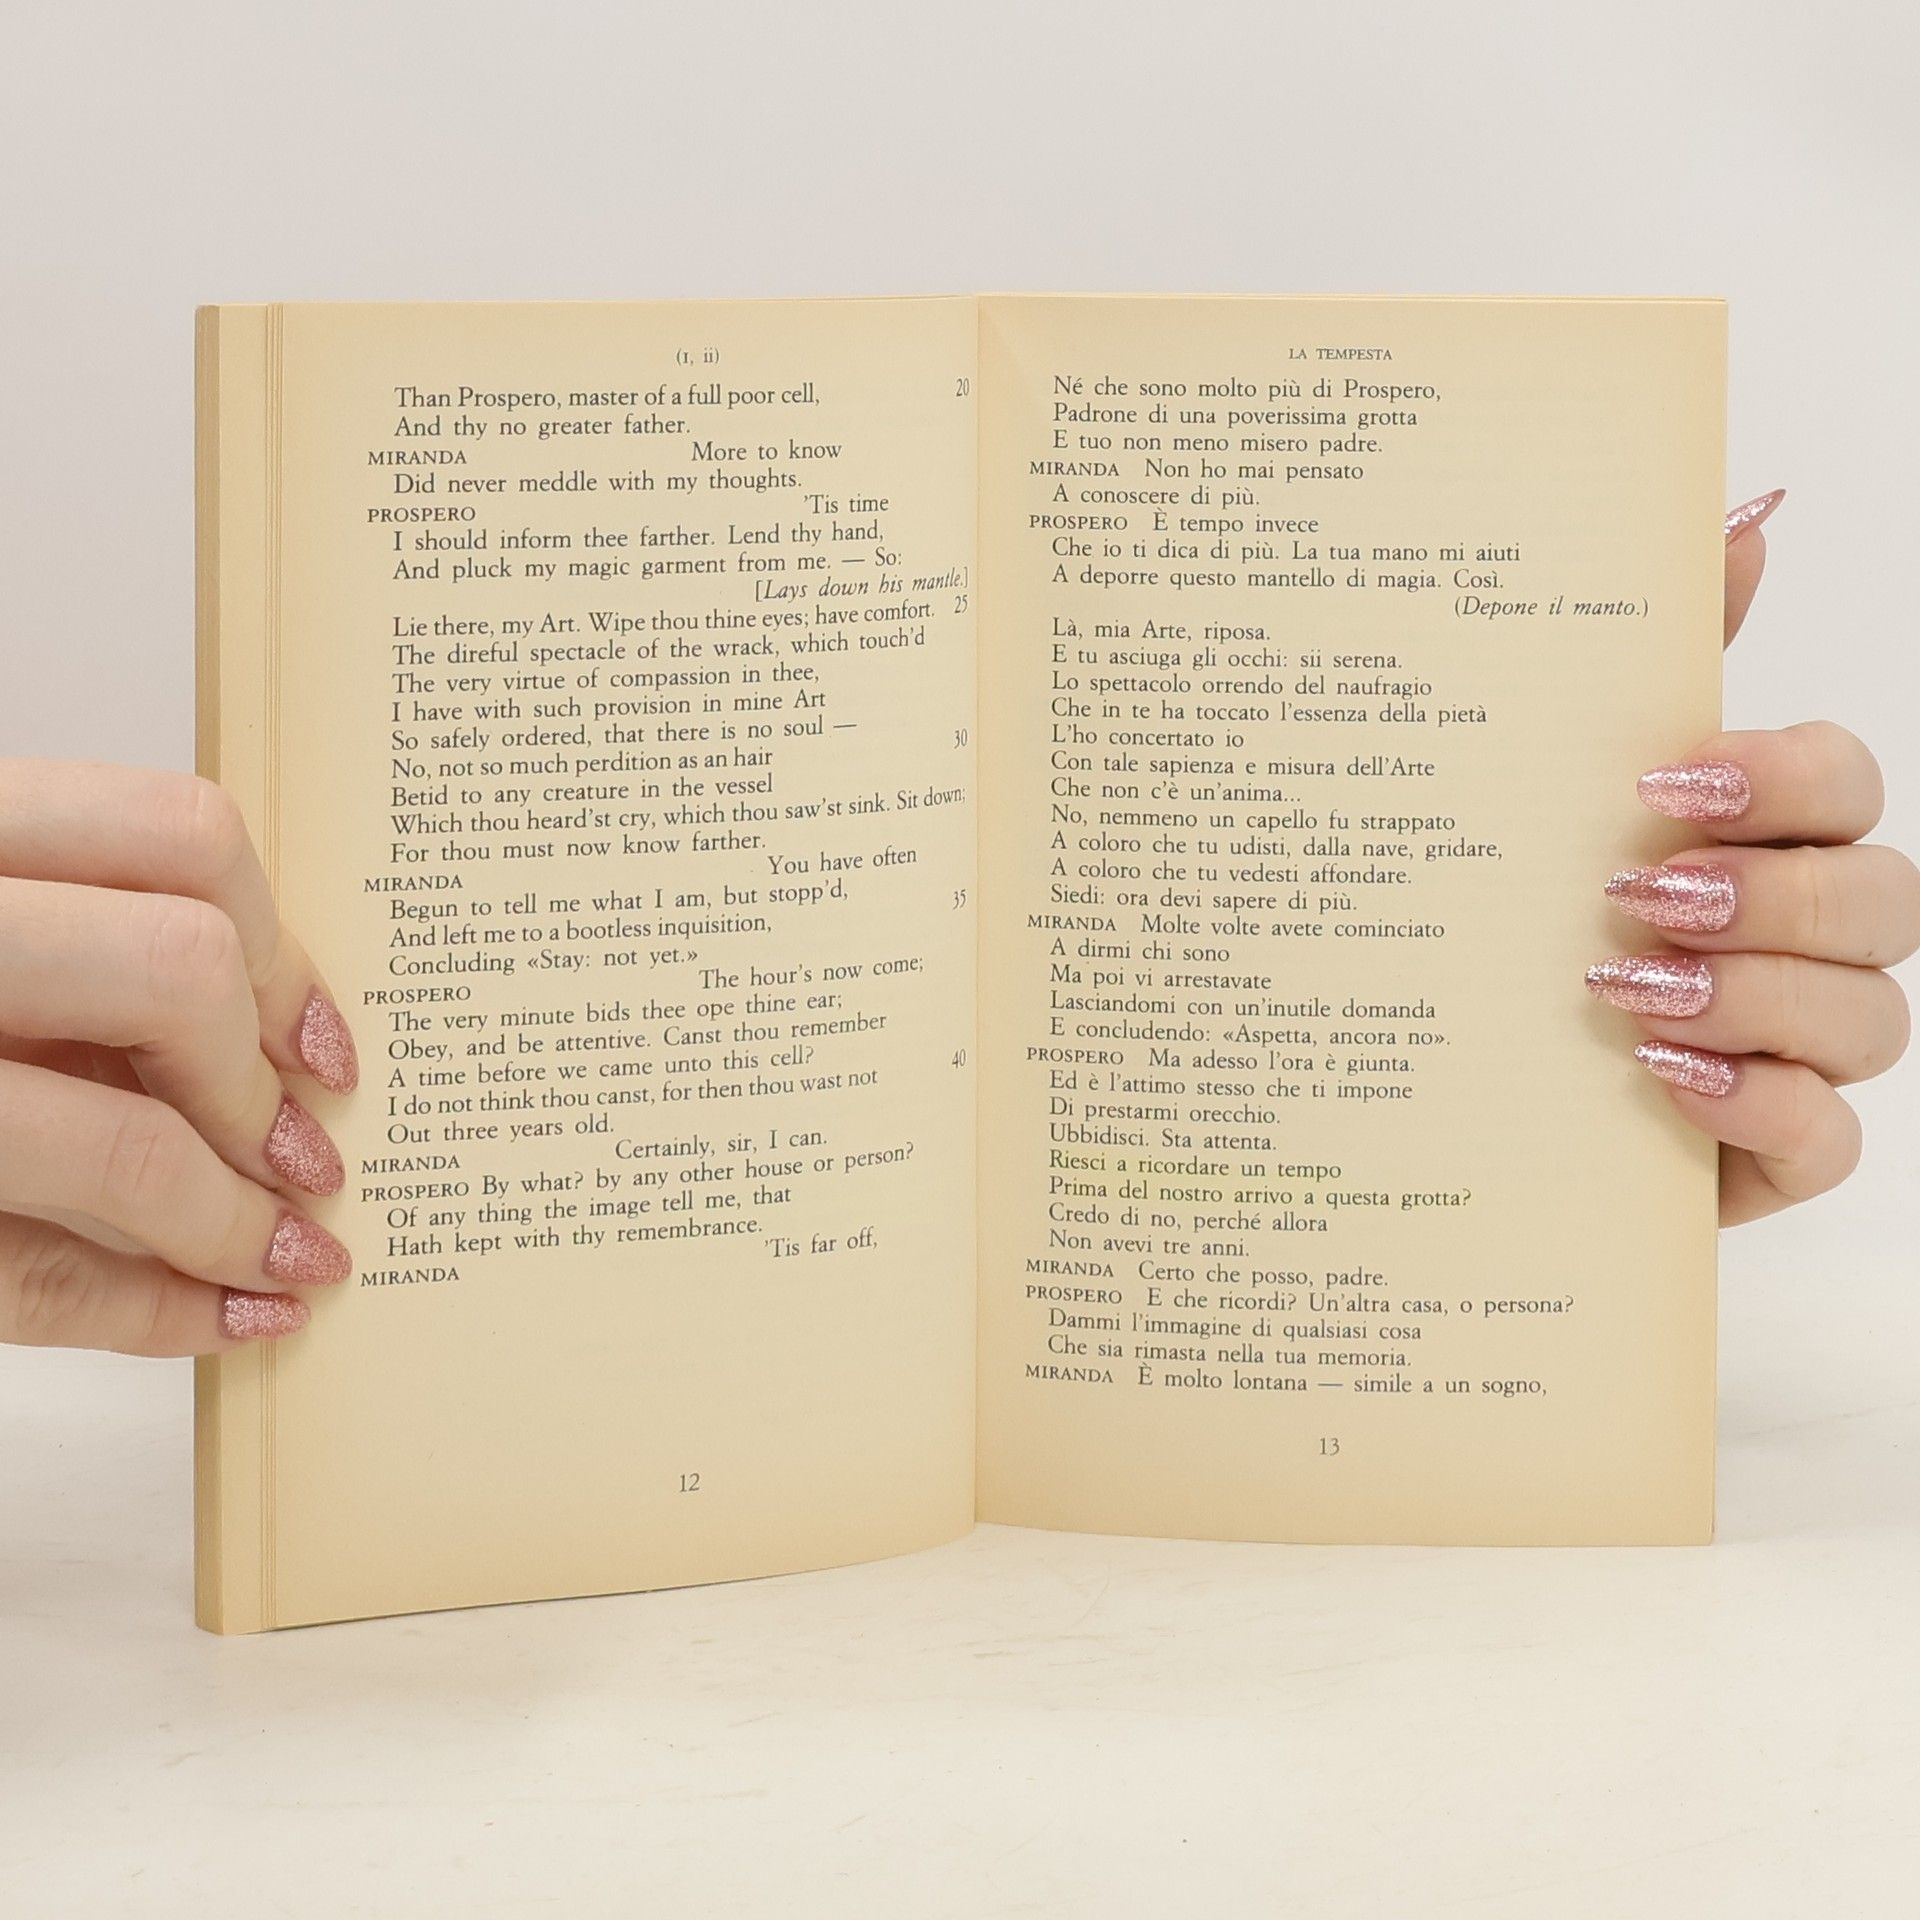 (I, ii)
Than Prospero, master of a full poor cell, 20
And thy no greater father.
MIRANDA More to know
Did never meddle with my thoughts.
PROSPERO 'Tis time
I should inform thee farther. Lend thy hand,
And pluck my magic garment from me. — So:
[Lays down his mantle.]
Lie there, my Art. Wipe thou thine eyes; have comfort. 25
The direful spectacle of the wrack, which touch'd
The very virtue of compassion in thee,
I have with such provision in mine Art
So safely ordered, that there is no soul —
No, not so much perdition as an hair 30
Betid to any creature in the vessel
Which thou heard'st cry, which thou saw'st sink. Sit down;
For thou must now know farther.
MIRANDA You have often
Begun to tell me what I am, but stopp'd,
And left me to a bootless inquisition, 35
Concluding «Stay: not yet.»
PROSPERO The hour's now come;
The very minute bids thee ope thine ear;
Obey, and be attentive. Canst thou remember
A time before we came unto this cell?
I do not think thou canst, for then thou wast not 40
Out three years old.
MIRANDA Certainly, sir, I can.
PROSPERO By what? by any other house or person?
Of any thing the image tell me, that
Hath kept with thy remembrance.
MIRANDA 'Tis far off,
12
LA TEMPESTA
Né che sono molto più di Prospero,
Padrone di una poverissima grotta
E tuo non meno misero padre.
MIRANDA Non ho mai pensato
A conoscere di più.
PROSPERO È tempo invece
Che io ti dica di più. La tua mano mi aiuti
A deporre questo mantello di magia. Così.
(Depone il manto.)
Là, mia Arte, riposa.
E tu asciuga gli occhi: sii serena.
Lo spettacolo orrendo del naufragio
Che in te ha toccato l'essenza della pietà
L'ho concertato io
Con tale sapienza e misura dell'Arte
Che non c'è un'anima...
No, nemmeno un capello fu strappato
A coloro che tu udisti, dalla nave, gridare,
A coloro che tu vedesti affondare.
Siedi: ora devi sapere di più.
MIRANDA Molte volte avete cominciato
A dirmi chi sono
Ma poi vi arrestavate
Lasciandomi con un'inutile domanda
E concludendo: «Aspetta, ancora no».
PROSPERO Ma adesso l'ora è giunta.
Ed è l'attimo stesso che ti impone
Di prestarmi orecchio.
Ubbidisci. Sta attenta.
Riesci a ricordare un tempo
Prima del nostro arrivo a questa grotta?
Credo di no, perché allora
Non avevi tre anni.
MIRANDA Certo che posso, padre.
PROSPERO E che ricordi? Un'altra casa, o persona?
Dammi l'immagine di qualsiasi cosa
Che sia rimasta nella tua memoria.
MIRANDA È molto lontana — simile a un sogno,
13